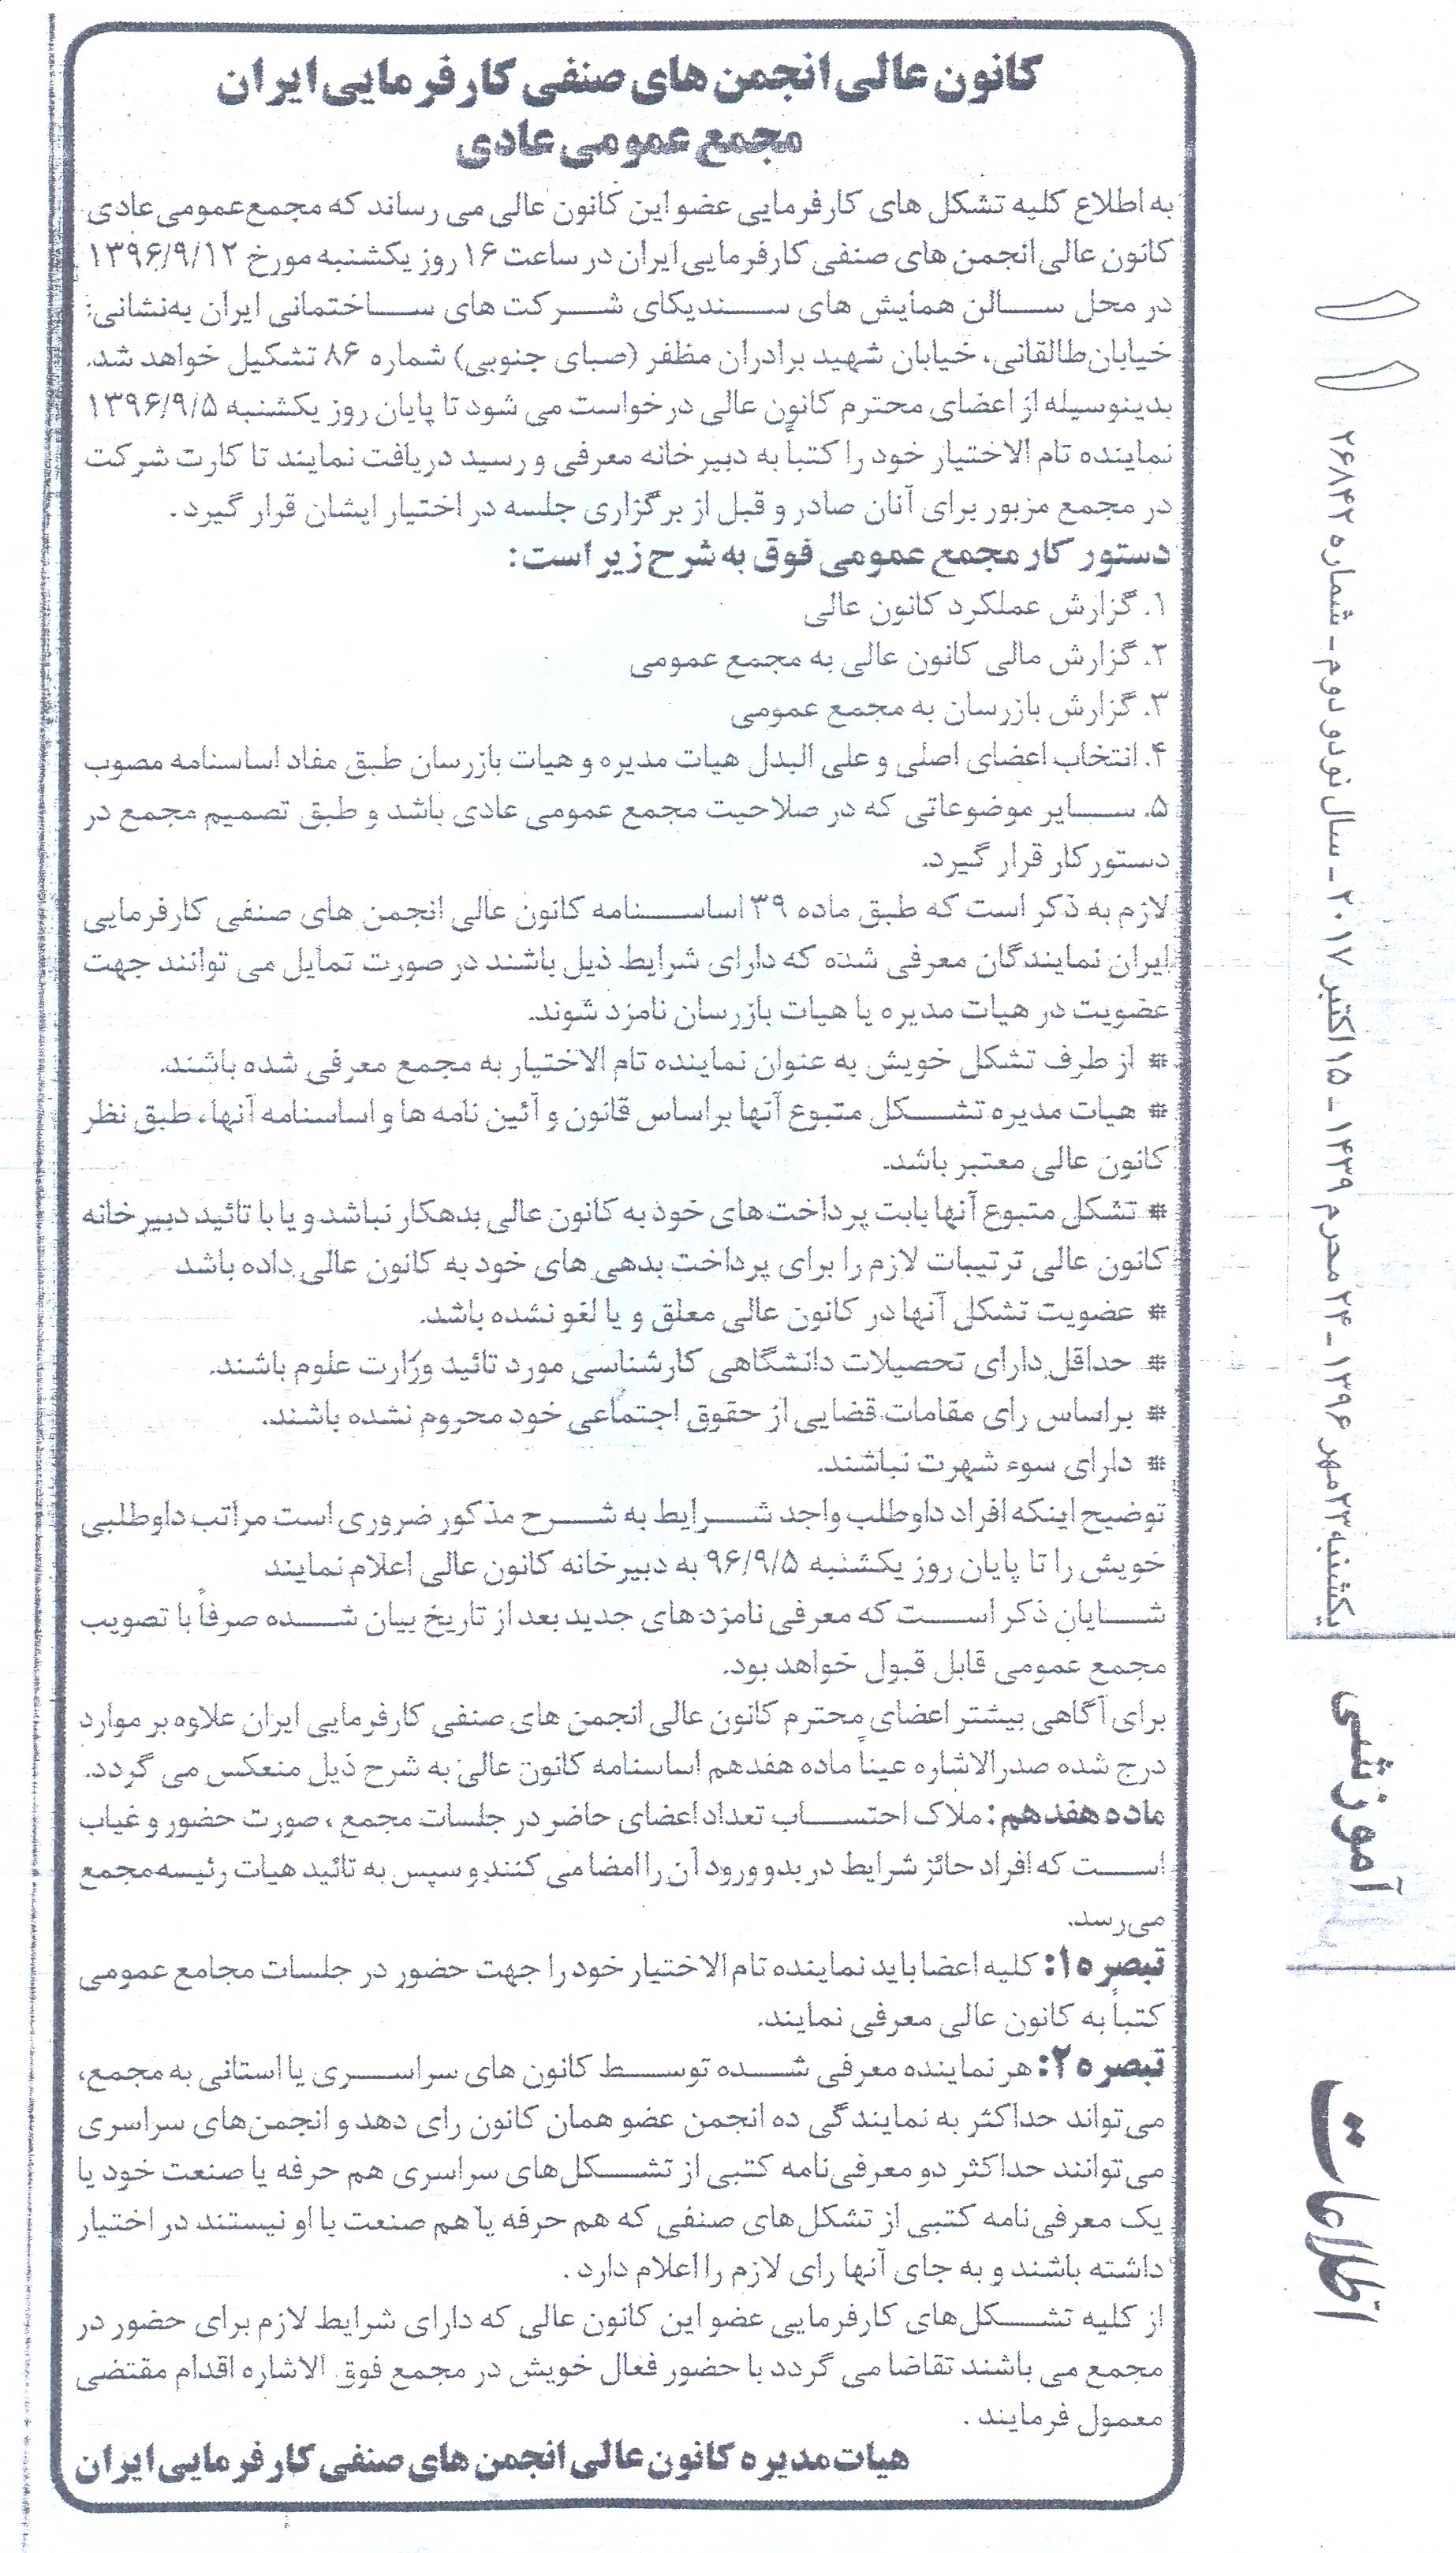 کانون عالی انجمن های صنفی کارفرمایی ایران
مجمع عمومی عادی
به اطلاع کلیه تشکل های کارفرمایی عضو این کانون عالی می رساند که مجمع عمومی عادی
کانون عالی انجمن های صنفی کارفرمایی ایران در ساعت ۱۶ روز یکشنبه مورخ ۱۳۹۶/۹/۱۲
در محل سالن همایش های سندیکای شرکت های ساختمانی ایران به‌نشانی:
خیابان طالقانی، خیابان شهید برادران مظفر (صبای جنوبی) شماره ۸۶ تشکیل خواهد شد.
بدینوسیله از اعضای محترم کانون عالی درخواست می شود تا پایان روز یکشنبه ۱۳۹۶/۹/۵
نماینده تام الاختیار خود را کتباً به دبیرخانه معرفی و رسید دریافت نمایند تا کارت شرکت
در مجمع مزبور برای آنان صادر و قبل از برگزاری جلسه در اختیار ایشان قرار گیرد.
دستور کار مجمع عمومی فوق به شرح زیر است:
۱. گزارش عملکرد کانون عالی
۲. گزارش مالی کانون عالی به مجمع عمومی
۳. گزارش بازرسان به مجمع عمومی
۴. انتخاب اعضای اصلی و علی البدل هیات مدیره و هیات بازرسان طبق مفاد اساسنامه مصوب
۵. سایر موضوعاتی که در صلاحیت مجمع عمومی عادی باشد و طبق تصمیم مجمع در
دستور کار قرار گیرد.
لازم به ذکر است که طبق ماده ۳۹ اساسنامه کانون عالی انجمن های صنفی کارفرمایی
ایران نمایندگان معرفی شده که دارای شرایط ذیل باشند در صورت تمایل می توانند جهت
عضویت در هیات مدیره یا هیات بازرسان نامزد شوند.
# از طرف تشکل خویش به عنوان نماینده تام الاختیار به مجمع معرفی شده باشند.
# هیات مدیره تشکل متبوع آنها براساس قانون و آئین نامه ها و اساسنامه آنها، طبق نظر
کانون عالی معتبر باشد.
# تشکل متبوع آنها بابت پرداخت‌های خود به کانون عالی بدهکار نباشد و یا با تائید دبیرخانه
کانون عالی ترتیبات لازم را برای پرداخت بدهی های خود به کانون عالی داده باشد
# عضویت تشکل آنها در کانون عالی معلق و یا لغو نشده باشد.
# حداقل دارای تحصیلات دانشگاهی کارشناسی مورد تائید وزارت علوم باشند.
# براساس رای مقامات قضایی از حقوق اجتماعی خود محروم نشده باشند.
# دارای سوء شهرت نباشند.
توضیح اینکه افراد داوطلب واجد شرایط به شرح مذکور ضروری است مراتب داوطلبی
خویش را تا پایان روز یکشنبه ۹۶/۹/۵ به دبیرخانه کانون عالی اعلام نمایند
شایان ذکر است که معرفی نامزدهای جدید بعد از تاریخ بیان شده صرفاً با تصویب
مجمع عمومی قابل قبول خواهد بود.
برای آگاهی بیشتر اعضای محترم کانون عالی انجمن های صنفی کارفرمایی ایران علاوه بر موارد
درج شده صدرالاشاره عیناً ماده هفدهم اساسنامه کانون عالی به شرح ذیل منعکس می گردد.
ماده هفدهم: ملاک احتساب تعداد اعضای حاضر در جلسات مجمع، صورت حضور و غیاب
است که افراد حائز شرایط در بدو ورود آن را امضا می کنند و سپس به تائید هیات رئیسه مجمع
می‌رسد.
تبصره ۱: کلیه اعضا باید نماینده تام الاختیار خود را جهت حضور در جلسات مجامع عمومی
کتباً به کانون عالی معرفی نمایند.
تبصره ۲: هر نماینده معرفی شده توسط کانون های سراسری یا استانی به مجمع،
می‌تواند حداکثر به نمایندگی ده انجمن عضو همان کانون رای دهد و انجمن‌های سراسری
می‌توانند حداکثر دو معرفی‌نامه کتبی از تشکل‌های سراسری هم حرفه یا صنعت خود یا
یک معرفی‌نامه کتبی از تشکل‌های صنفی که هم حرفه یا هم صنعت با او نیستند در اختیار
داشته باشند و به جای آنها رای لازم را اعلام دارد.
از کلیه تشکل‌های کارفرمایی عضو این کانون عالی که دارای شرایط لازم برای حضور در
مجمع می باشند تقاضا می گردد با حضور فعال خویش در مجمع فوق الاشاره اقدام مقتضی
معمول فرمایند.
هیات مدیره کانون عالی انجمن های صنفی کارفرمایی ایران
۱۱
یکشنبه ۲۳ مهر ۱۳۹۶ ـ ۲۴ محرم ۱۴۳۹ ـ ۱۵ اکتبر ۲۰۱۷ ـ سال نود و دوم ـ شماره ۲۶۸۴۲
آموزشی
اطلاعات